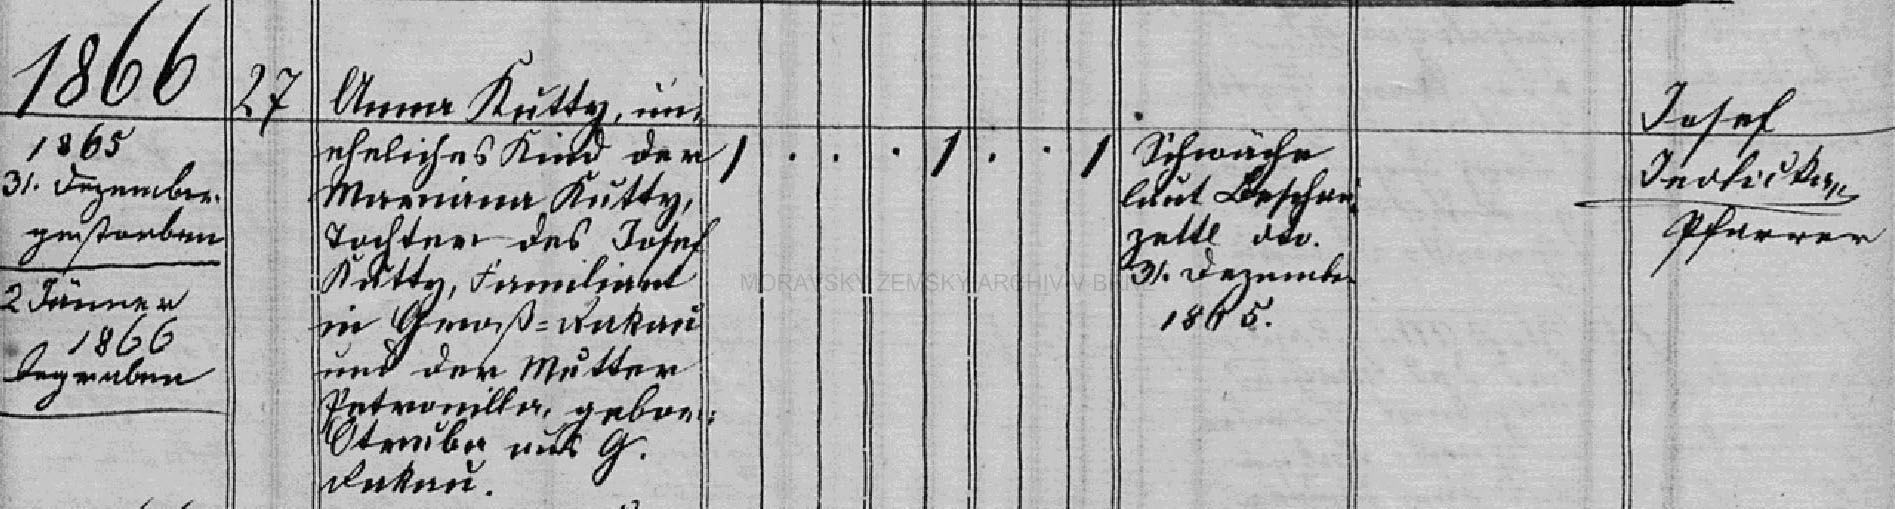 1866
1865
31. Dezember
gestorben
2 Jänner
1866
begraben
27
Anna Kutty, un-
eheliches Kind der
Mariana Kutty,
Tochter des Josef
Kutty, Familiant
in Groß=Rakau
und der Mutter
Petronilla, gebor:
Straube aus G.
Rakau.
1 . . . 1 . . 1
Schwäche
laut Beschau
zettl ddo.
31. Dezember
1865.
Josef
Pfarrer
MORAVSKÝ ZEMSKÝ ARCHIV V BRNĚ